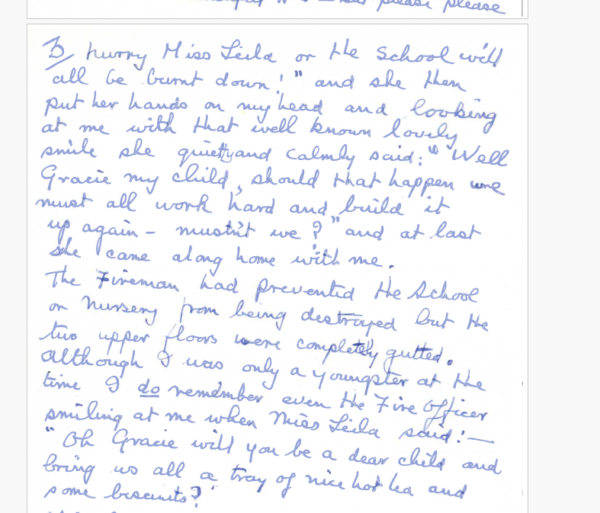 please please
3/ hurry Miss Leila or the School will
all be burnt down!" and she then
put her hands on my head and looking
at me with that well known lovely
smile she quietly and calmly said: "Well
Gracie my child, should that happen we
must all work hard and build it
up again - mustn't we?" and at last
she came along home with me.
The Fireman had prevented the School
or Nursery from being destroyed but the
two upper floors were completely gutted.
Although I was only a youngster at the
time I do remember even the Fire Officer
smiling at me when Miss Leila said:—
"Oh Gracie will you be a dear child and
bring us all a tray of nice hot tea and
some biscuits?"